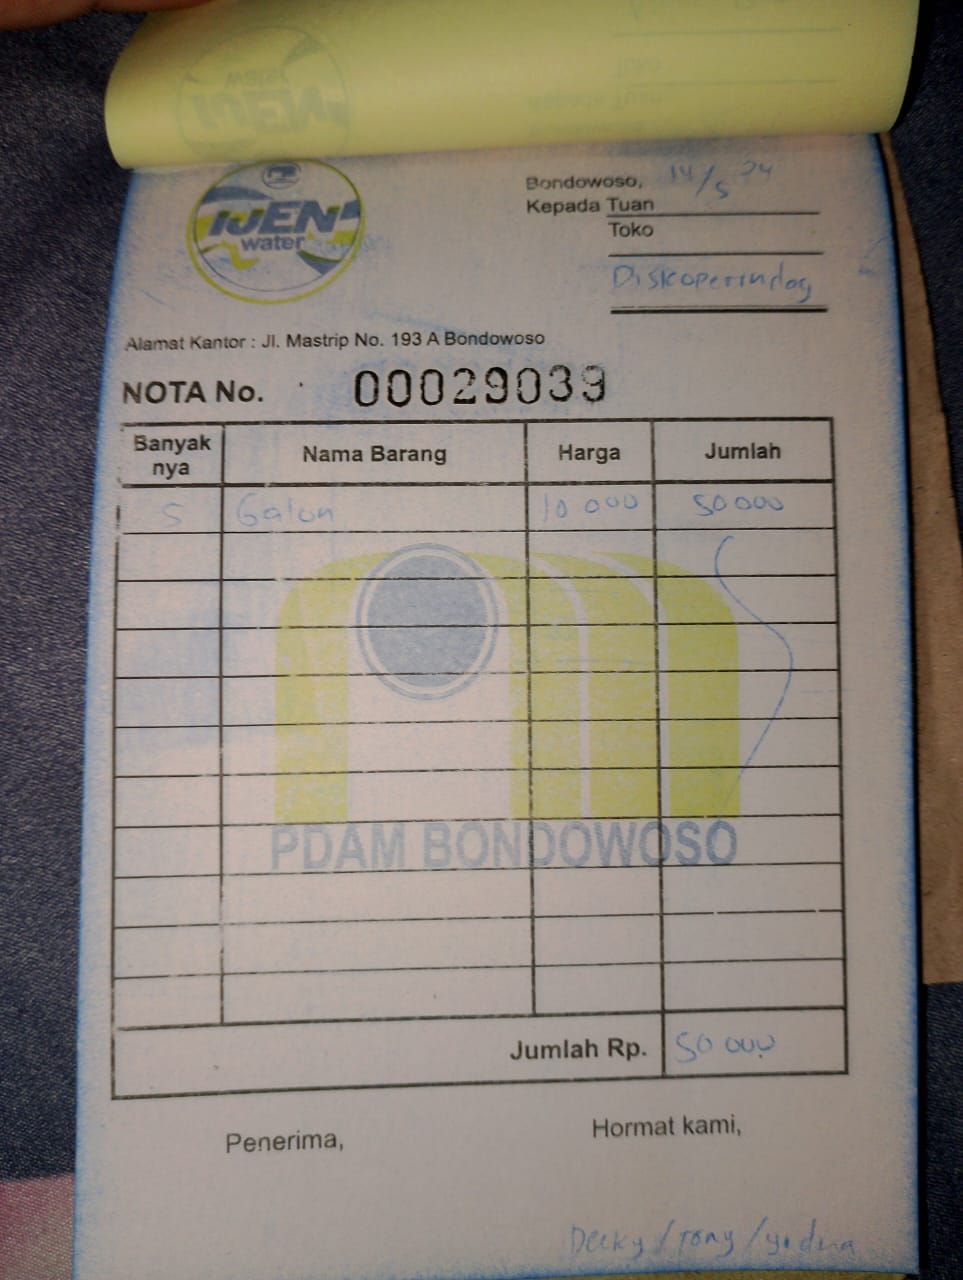 IJEN
water
Bondowoso, 14/5 24
Kepada Tuan
Toko
Diskoperindag
Alamat Kantor : Jl. Mastrip No. 193 A Bondowoso
NOTA No. 00029039
Banyak nya Nama Barang Harga Jumlah
5 Galon 10 000 50 000
PDAM BONDOWOSO
Jumlah Rp. 50 000
Penerima, Hormat kami,
Decky / rony /